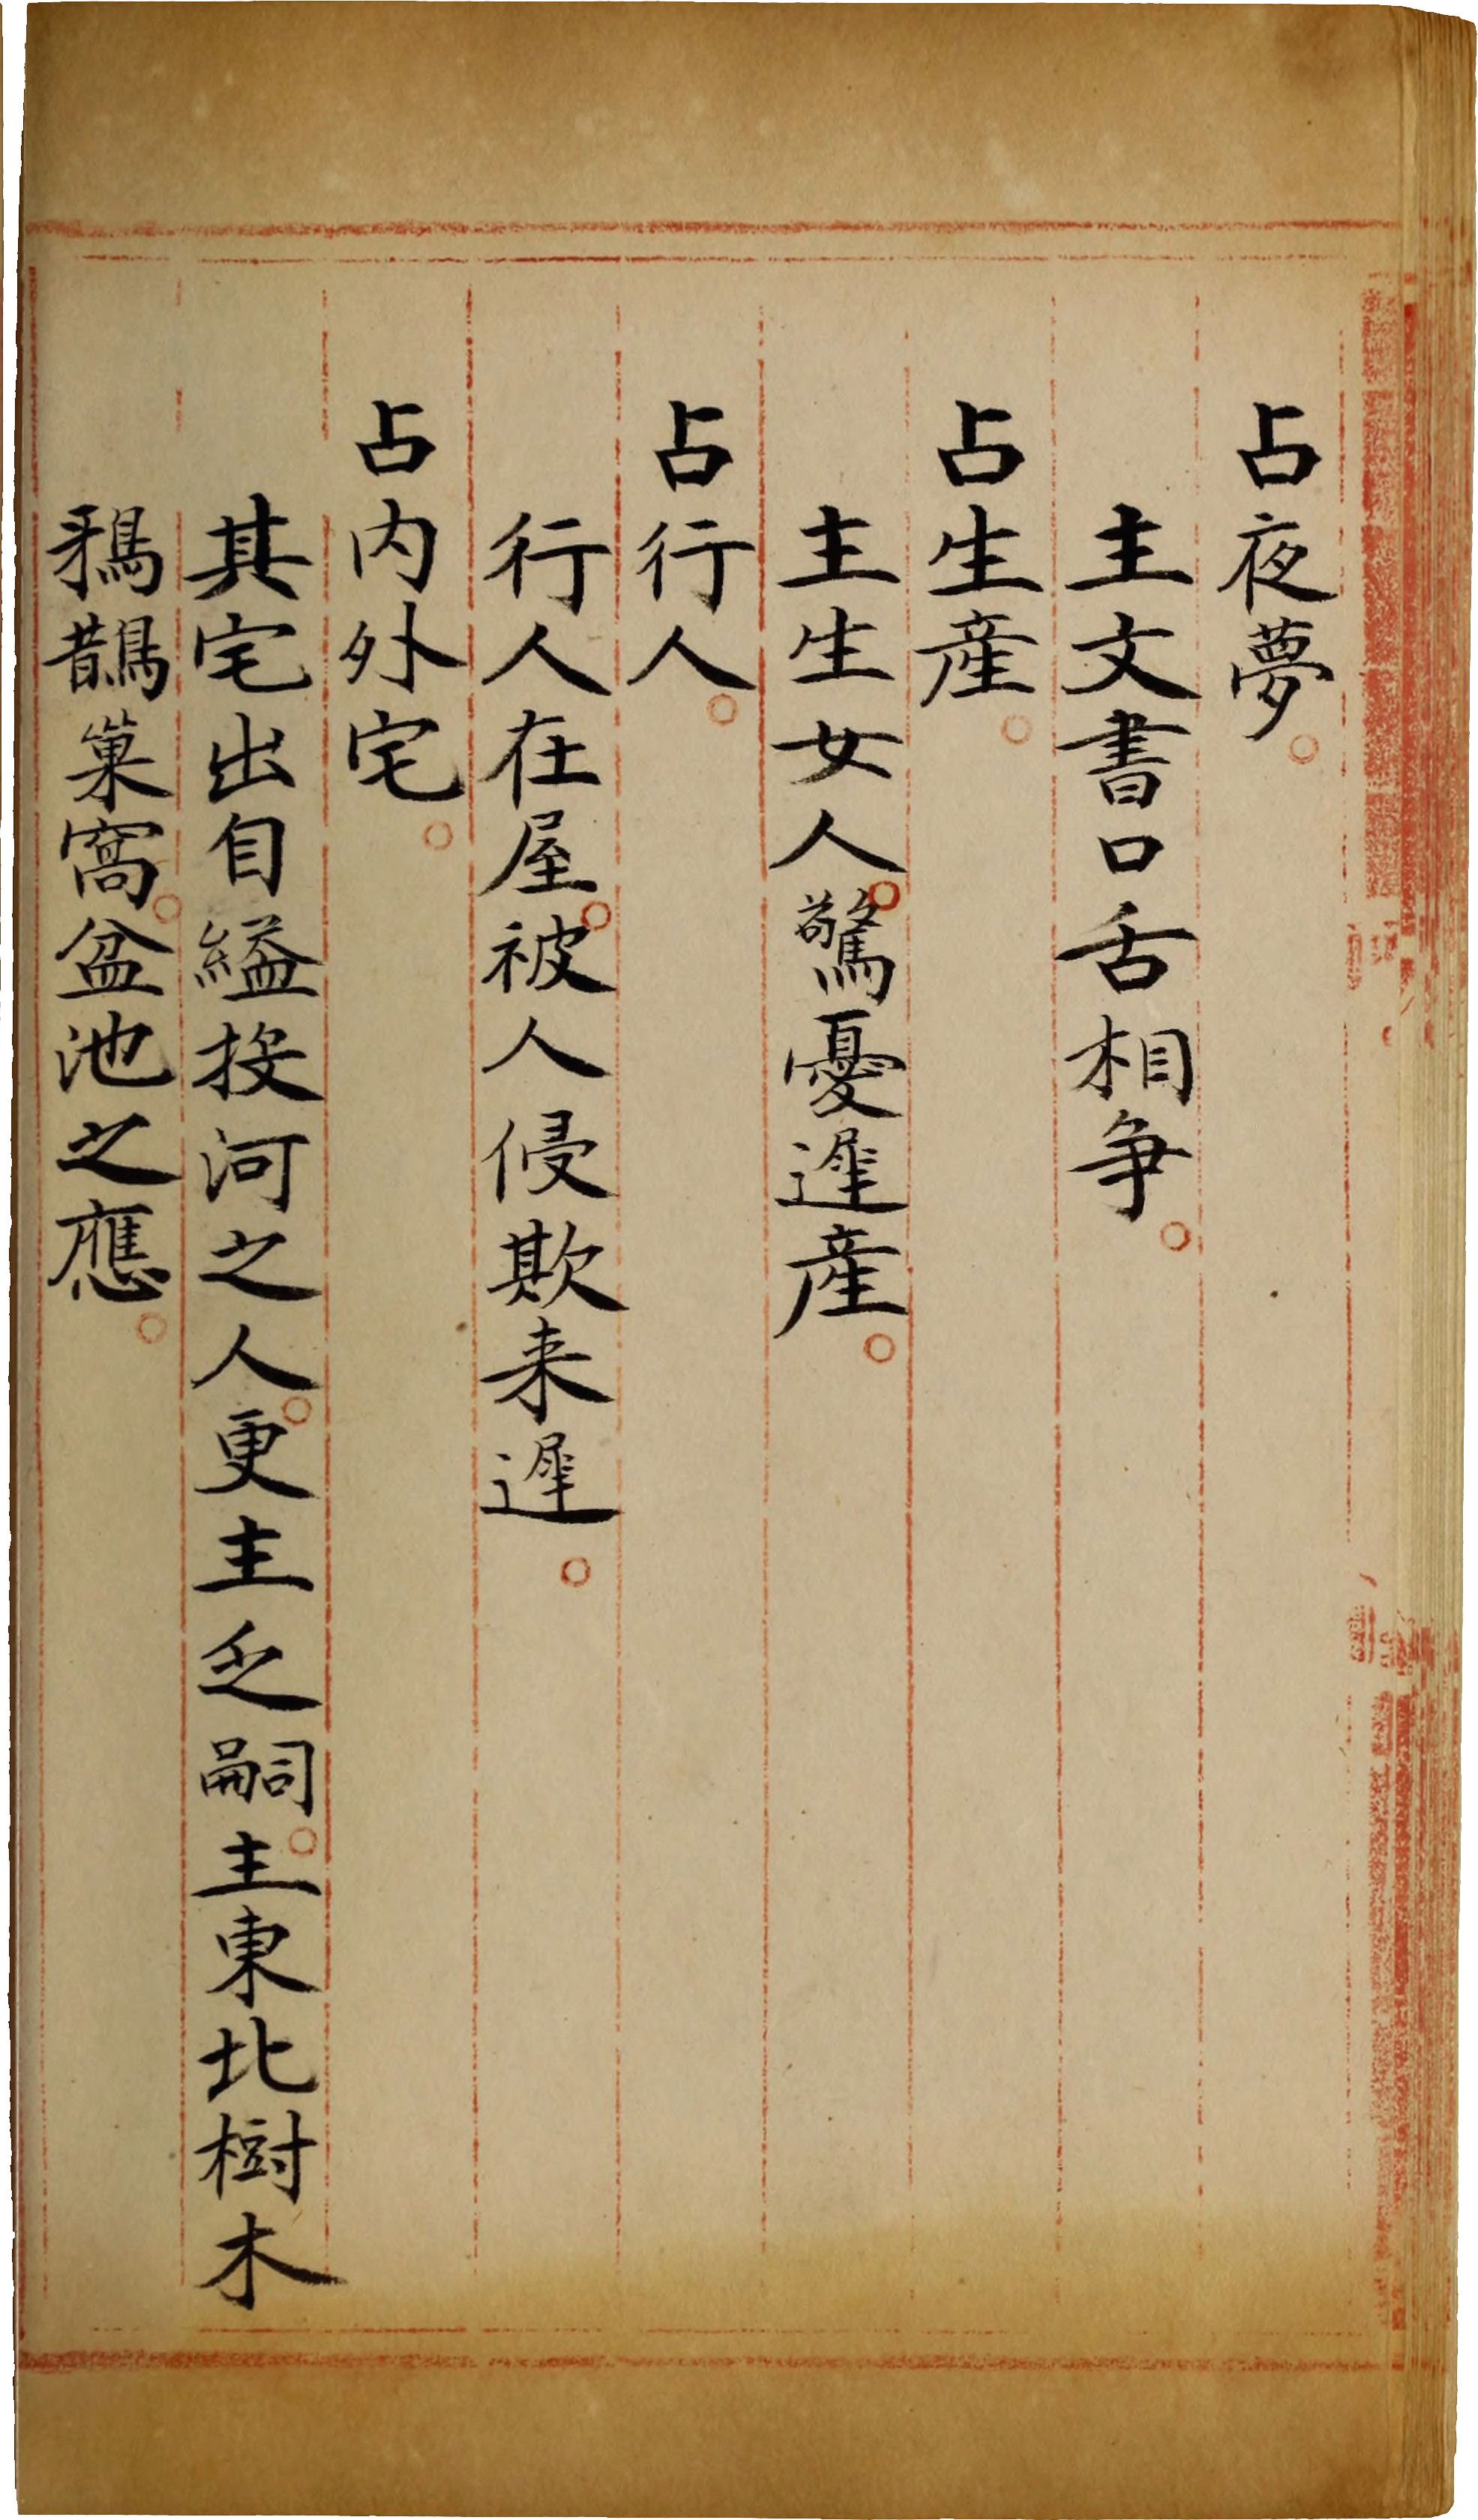 占夜夢。
主文書口舌相争。
占生産。
主生女人。驚憂遲産。
占行人。
行人在屋。被人侵欺来遲。
占内外宅。
其宅出自縊投河之人。更主乏嗣。主東北樹木
鴉鵲巢窩。盆池之應。